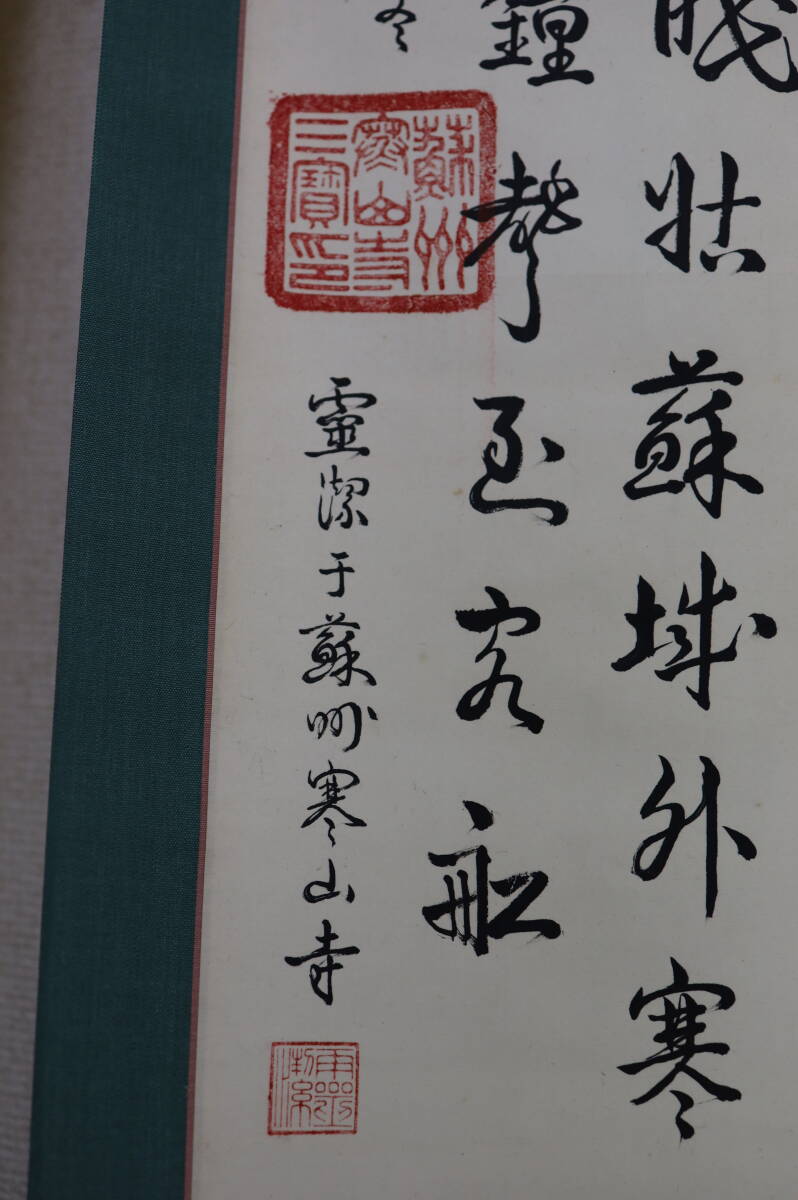 眠姑蘇城外寒
鐘聲到客船
冬
蘇州
寒山寺
三寶印
靈潔于蘇州寒山寺
靈潔